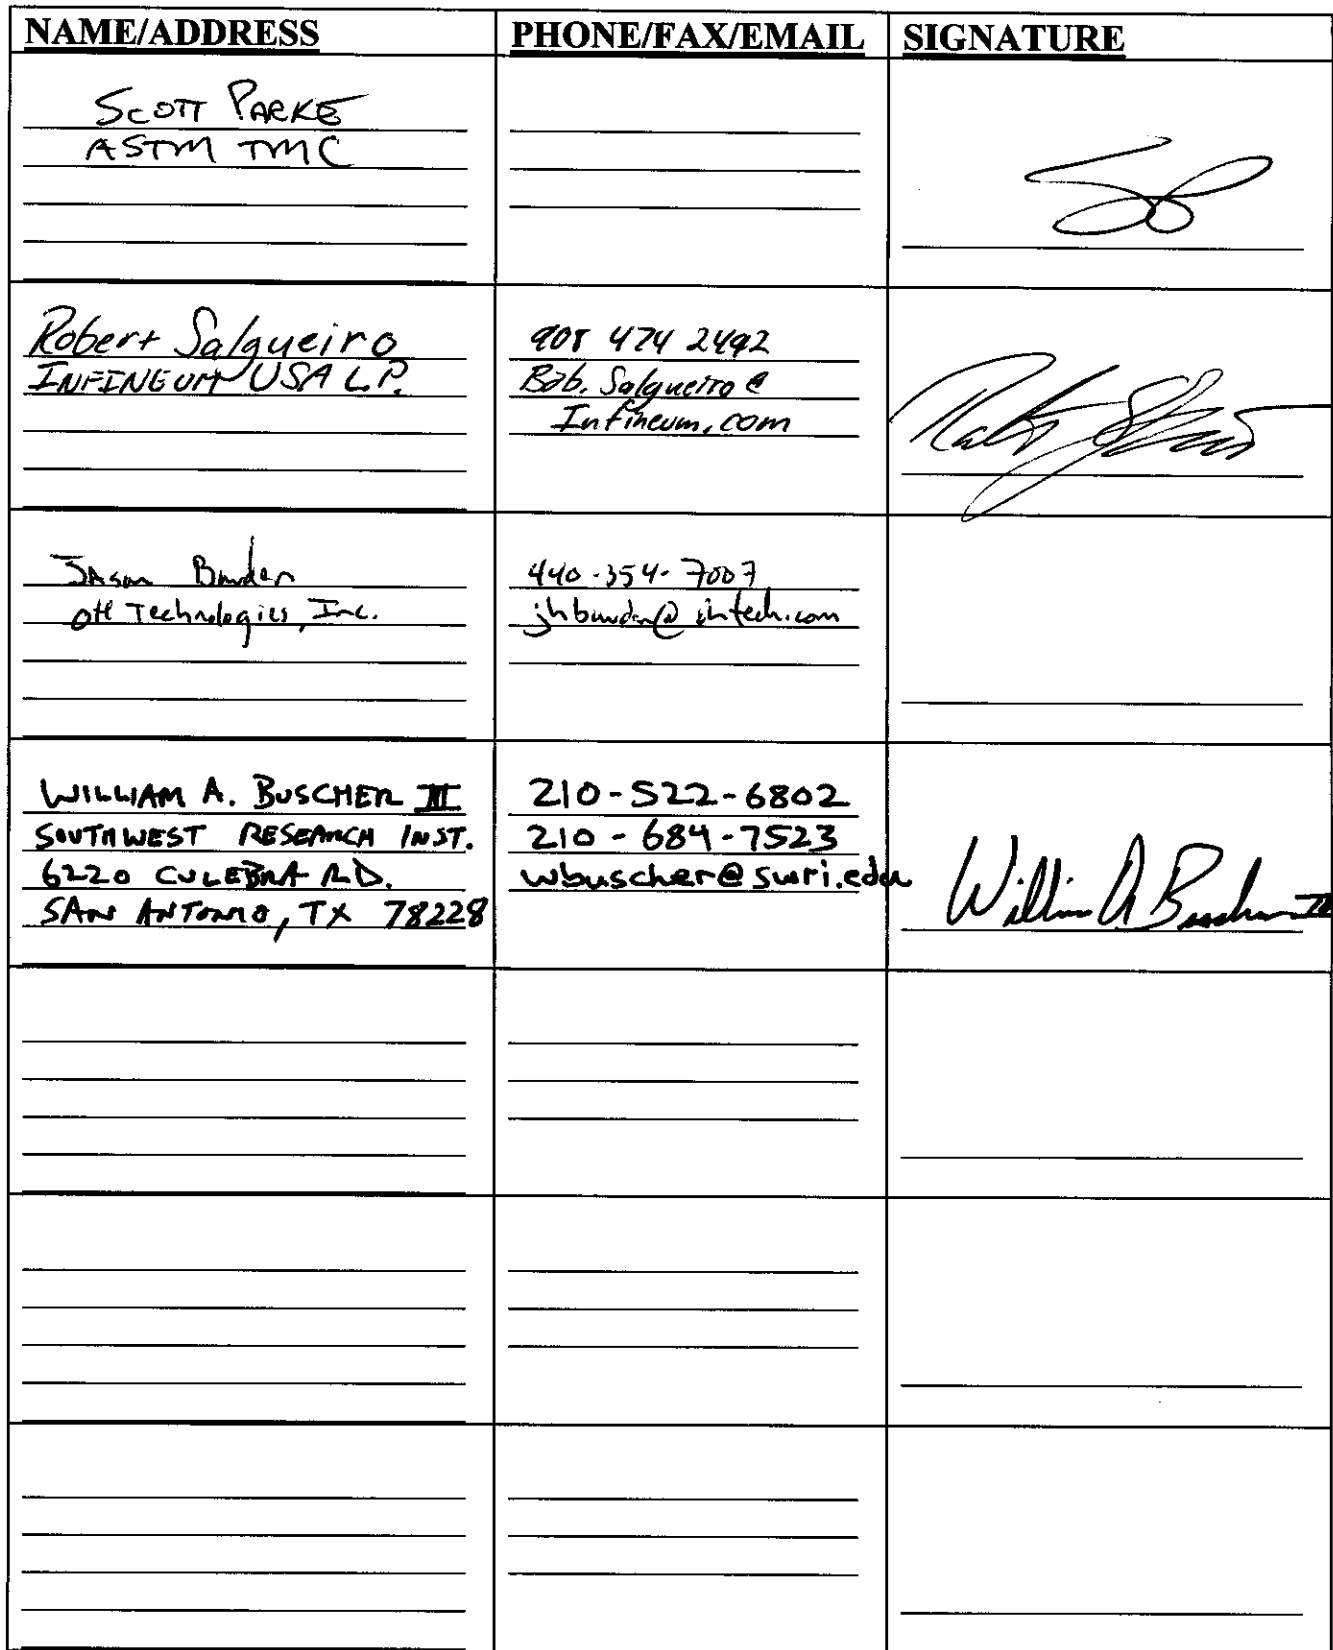 NAME/ADDRESS PHONE/FAX/EMAIL SIGNATURE
SCOTT PARKE
ASTM TMC
Robert Salgueiro
INFINEUM USA L.P.
908 474 2492
Bob.Salgueiro@
Infineum.com
Jason Bowden
OH Technologies, Inc.
440-354-7007
jhbowden@ohtech.com
WILLIAM A. BUSCHER III
SOUTHWEST RESEARCH INST.
6220 CULEBRA RD.
SAN ANTONIO, TX 78228
210-522-6802
210-684-7523
wbuscher@swri.edu
William A Buscher III